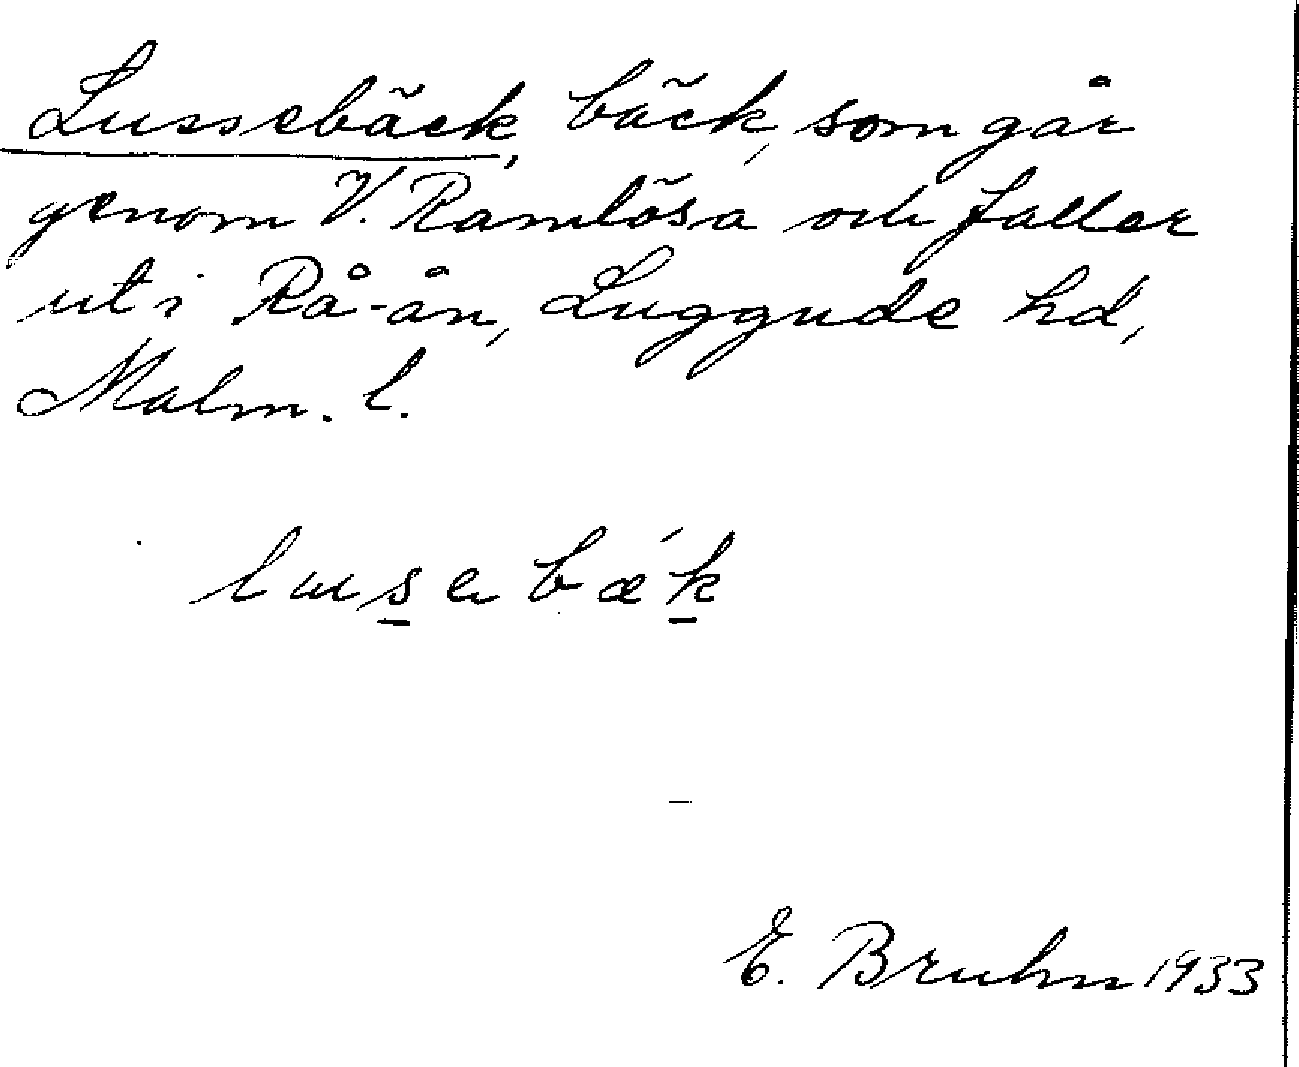 Lussebäck, bäck, som går
genom V. Ramlösa och faller
ut i Rå-ån, Luggude hd,
Malm. l.
lusəbæ´k
E. Bruhn 1933